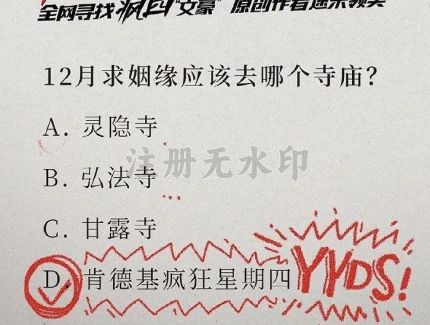 全网寻找疯四“文豪” 原创作者速来领奖
12月求姻缘应该去哪个寺庙？
A. 灵隐寺
注册无水印
B. 弘法寺
C. 甘露寺
D. 肯德基疯狂星期四
YYDS!